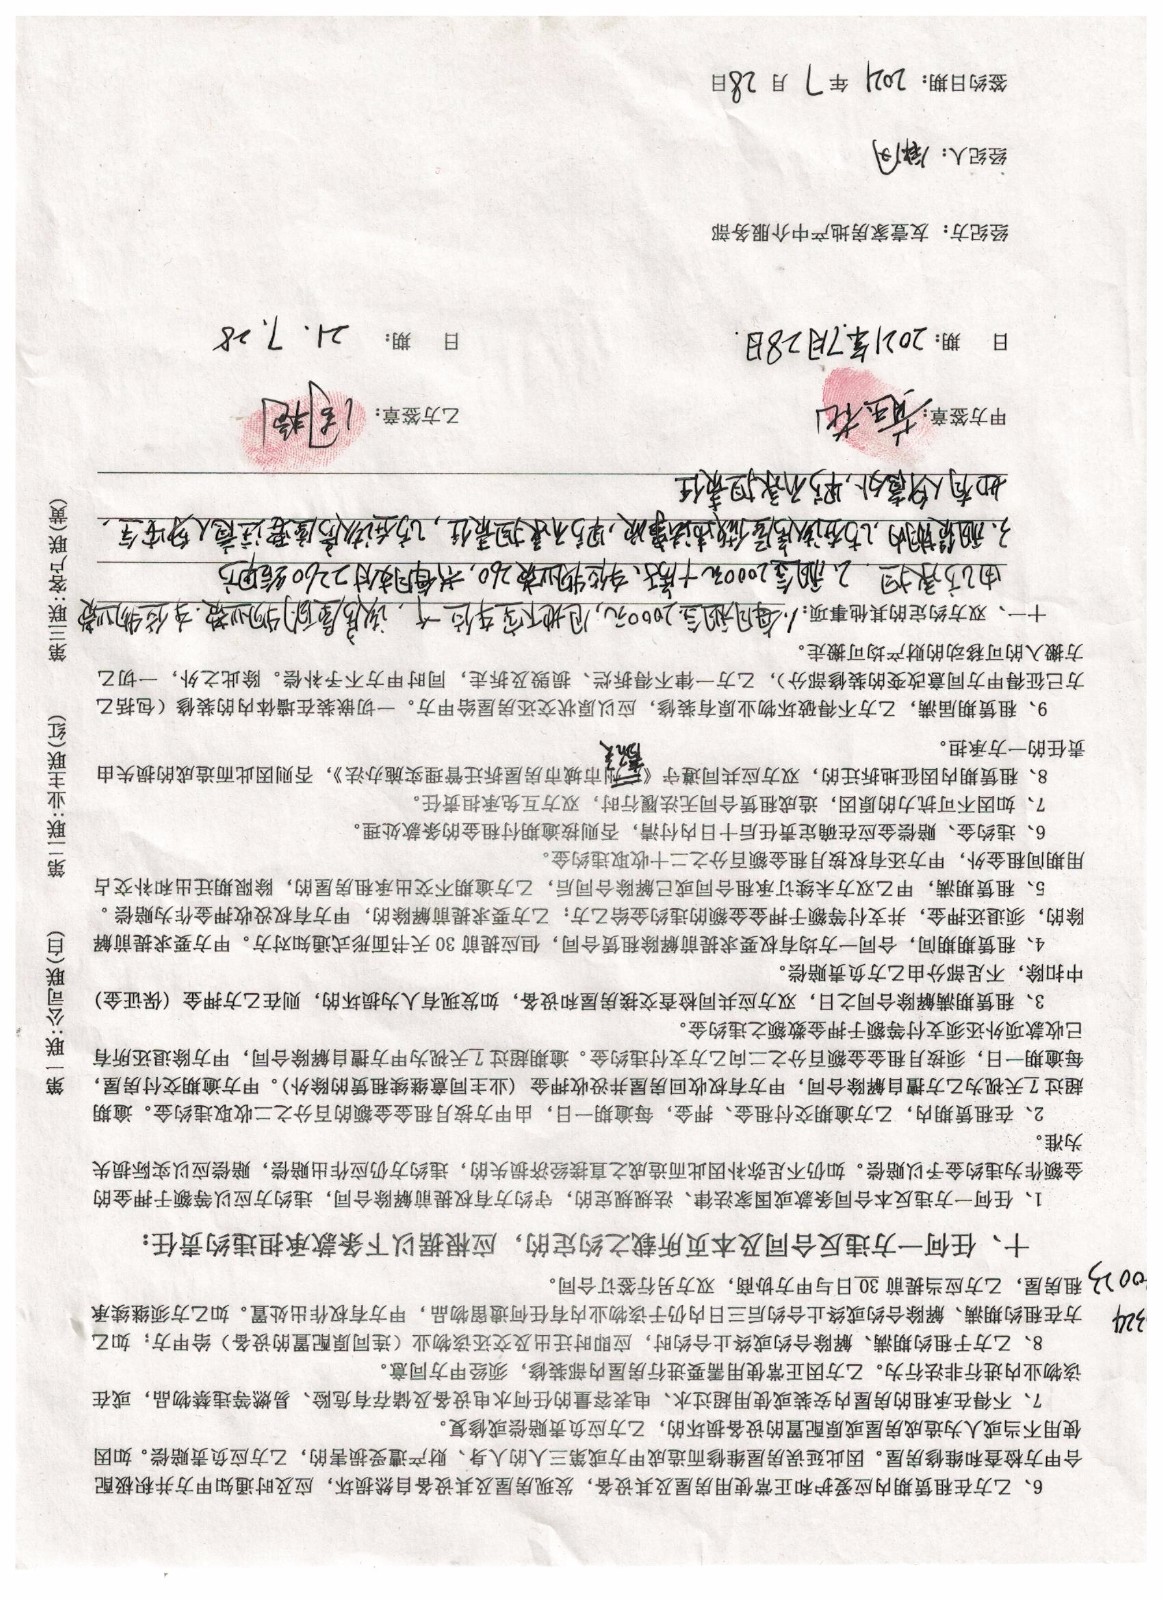 6、乙方在租赁期内应爱护和正常使用房屋及其设备，发现房屋及其设备自然损坏，应及时通知甲方并积极配
合甲方检查和维修房屋。因此延误房屋维修而造成甲方或第三人的人身、财产遭受损害的，乙方应负责赔偿。如因
使用不当或人为造成房屋或原配置的设备损坏的，乙方应负责赔偿或修复。
7、不得在承租的房屋内安装或使用超过水、电表容量的任何水电设备及储存有危险、易燃等违禁物品，或在
该物业内进行非法行为。乙方因正常使用需要进行房屋内部装修，须经甲方同意。
8、乙方于租约期满、解除合约或终止合约时，应即时迁出及交还该物业（连同原配置的设备）给甲方；如乙
方在租约期满、解除合约或终止合约后三日内仍于该物业内有任何遗留物品，甲方有权作出处置。如乙方须继续承
租房屋，乙方应当提前 30 日与甲方协商，双方另行签订合同。
324
0023
十、任何一方违反合同及本页所载之约定的，应根据以下条款承担违约责任：
1、任何一方违反本合同条款或国家法律、法规规定的，守约方有权提前解除合同，违约方应以等额于押金的
金额作为违约金予以赔偿。如仍不足弥补因此而造成之直接经济损失的，违约方仍应作出赔偿，赔偿应以实际损失
为准。
2、在租赁期内，乙方逾期交付租金、押金，每逾期一日，由甲方按月租金金额的百分之二收取违约金。逾期
超过 7 天视为乙方擅自解除合同，甲方有权收回房屋并没收押金（业主同意继续租赁的除外）。甲方逾期交付房屋，
每逾期一日，须按月租金金额百分之二向乙方支付违约金。逾期超过 7 天视为甲方擅自解除合同，甲方除退还所有
已收款项外还须支付等额于押金数额之违约金。
3、租赁期满解除合同之日，双方应共同检查交接房屋和设备，如发现有人为损坏的，则在乙方押金（保证金）
中扣除，不足部分由乙方负责赔偿。
4、租赁期期间，合同一方均有权要求提前解除租赁合同，但应提前 30 天书面形式通知对方。甲方要求提前解
除的，须退还押金，并支付等额于押金金额的违约金给乙方；乙方要求提前解除的，甲方有权没收押金作为赔偿。
5、租赁期满，甲乙双方未续订承租合同或已解除合同后，乙方逾期不交出承租房屋的，除限期迁出和补交占
用期间租金外，甲方还有权按月租金额百分之二十收取违约金。
6、违约金、赔偿金应在确定责任后十日内付清，否则按逾期付租金的条款处理。
7、如因不可抗力的原因，造成租赁合同无法履行时，双方互免承担责任。
8、租赁期内因征地拆迁的，双方应共同遵守《市城市房屋拆迁管理实施办法》，否则因此而造成的损失由
责任的一方承担。
9、租赁期届满，乙方不得破坏物业原有装修，应以原状交还房屋给甲方。一切嵌装在墙体内的装修（包括乙
方已征得甲方同意改变的装修部分），乙方一律不得拆烂、损毁及拆走，同时甲方不予补偿。除此之外，一切乙
方搬入的可移动的财产均可搬走。
十一、双方约定的其他事项：1.每月租金2000元，包地下室车位一个，该房屋的物业费.车位物业费
由乙方承担. 2.租金2000元+房子、车位物业费260，共每月支付2260给甲方
3.租赁期内，乙方在该房屋做违法事.甲方不承担责任，乙方在该房屋要注意人身安全，
如有人身意外，甲方不承担责任
甲方签章：
乙方签章：
日 期：2021年7月28日.
日 期：21.7.28
经纪方：友壹家房地产中介服务部
经纪人：
签约日期：2021 年 7 月 28日
第一联：公司联(白) 第二联：业主联(红) 第三联：客户联(黄)